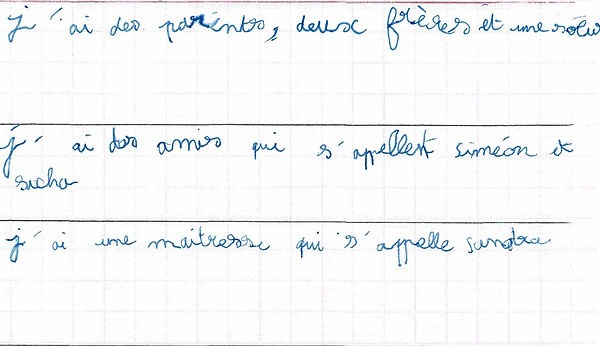 j'ai des parents, deux frères et une sœur
j'ai des amis qui s'appellent siméon et
sacha
j'ai une maitresse qui s'appelle sandra